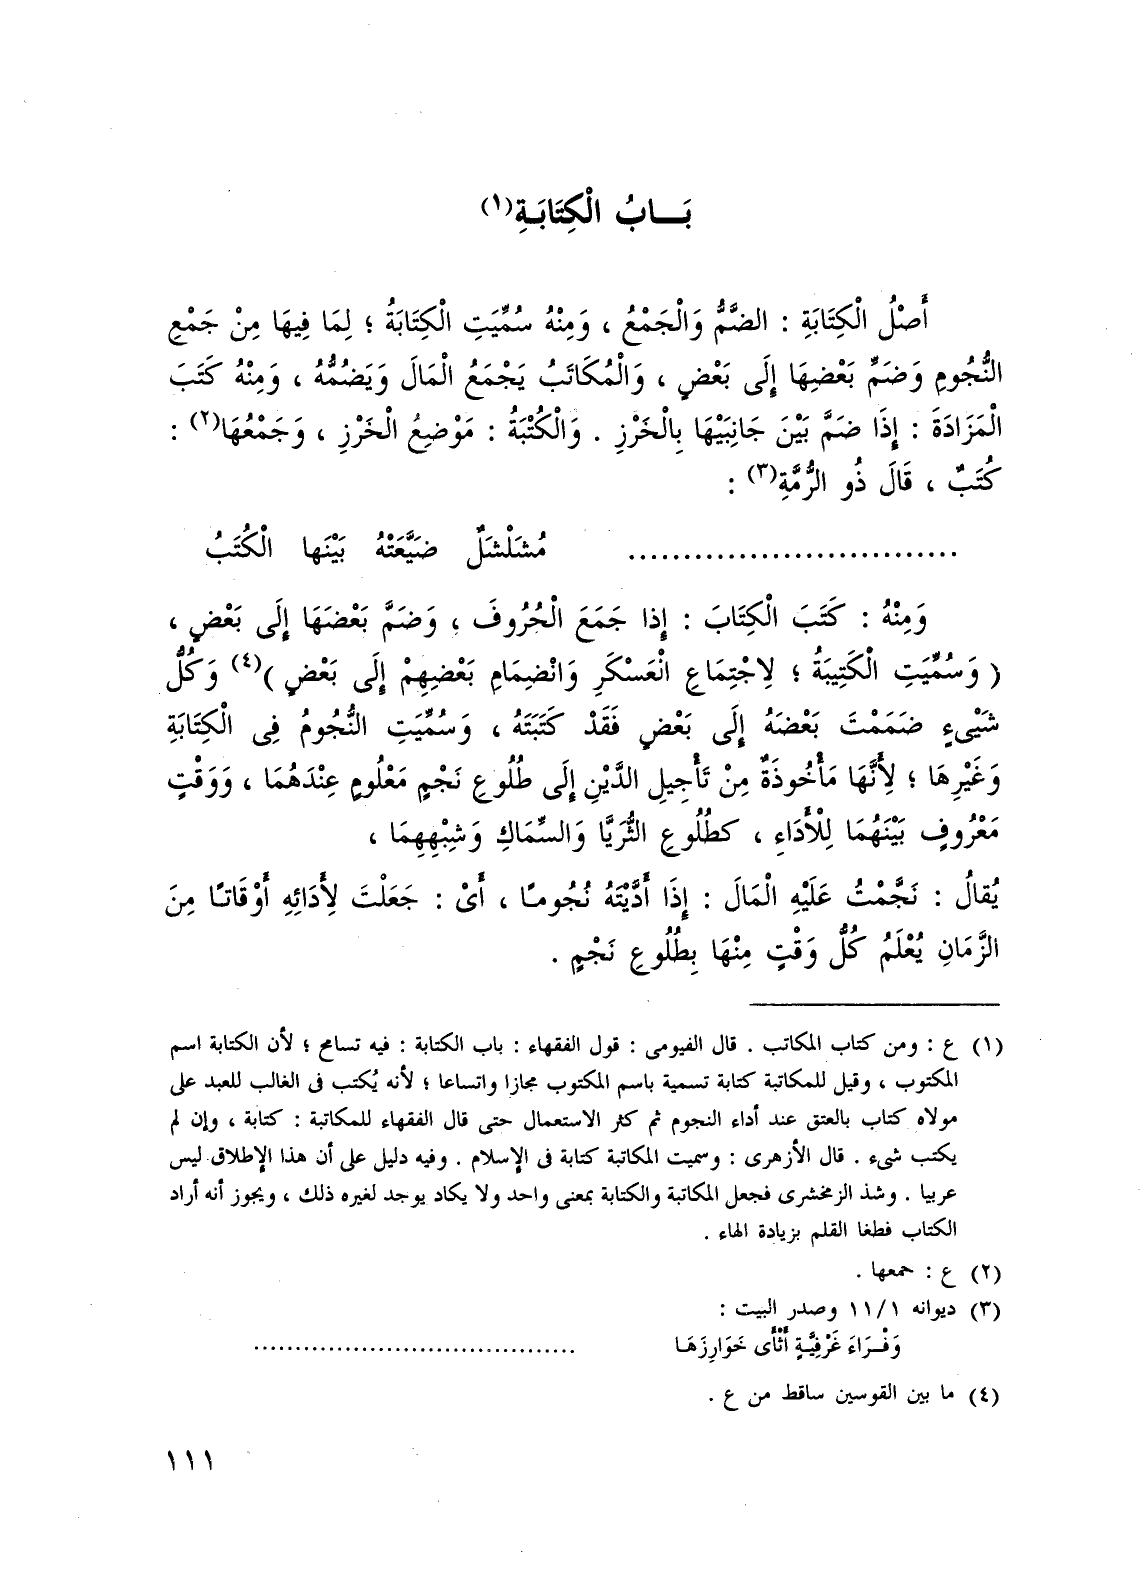 بَــابُ الْكِتَابَةِ(١)
أَصْلُ الْكِتَابَةِ : الضَّمُّ وَالْجَمْعُ ، وَمِنْهُ سُمِّيَتِ الْكِتَابَةُ ؛ لِمَا فِيهَا مِنْ جَمْعِ
النُّجُومِ وَضَمِّ بَعْضِهَا إِلَى بَعْضٍ ، وَالْمُكَاتَبُ يَجْمَعُ الْمَالَ وَيَضُمُّهُ ، وَمِنْهُ كَتَبَ
الْمَزَادَةَ : إِذَا ضَمَّ بَيْنَ جَانِبَيْهَا بِالْخَرْزِ . وَالْكُتْبَةُ : مَوْضِعُ الْخَرْزِ ، وَجَمْعُهَا(٢) :
كُتَبٌ ، قَالَ ذُو الرُّمَّةِ(٣) :
.............................. مُشَلْشَلٌ ضَيَّعَتْهُ بَيْنَها الْكُتَبُ
وَمِنْهُ : كَتَبَ الْكِتَابَ : إِذا جَمَعَ الْحُرُوفَ ، وَضَمَّ بَعْضَهَا إِلَى بَعْضٍ ،
( وَسُمِّيَتِ الْكَتِيبَةُ ؛ لِاجْتِمَاعِ الْعَسْكَرِ وَانْضِمَامِ بَعْضِهِمْ إِلَى بَعْضٍ )(٤) وَكُلُّ
شَيْىءٍ ضَمَمْتَ بَعْضَهُ إِلَى بَعْضٍ فَقَدْ كَتَبْتَهُ ، وَسُمِّيَتِ النُّجُومُ فِى الْكِتَابَةِ
وَغَيْرِهَا ؛ لِأَنَّهَا مَأْخُوذَةٌ مِنْ تَأْجِيلِ الدَّيْنِ إِلَى طُلُوعِ نَجْمٍ مَعْلُومٍ عِنْدَهُمَا ، وَوَقْتٍ
مَعْرُوفٍ بَيْنَهُمَا لِلْأَدَاءِ ، كَطُلُوعِ الثُّرَيَّا وَالسِّمَاكِ وَشِبْهِهِمَا ،
يُقالُ : نَجَّمْتُ عَلَيْهِ الْمَالَ : إِذَا أَدَّيْتَهُ نُجُومًا ، أَىْ : جَعَلْتَ لِأَدَائِهِ أَوْقَاتًا مِنَ
الزَّمَانِ يُعْلَمُ كُلُّ وَقْتٍ مِنْهَا بِطُلُوعِ نَجْمٍ .
(١) ع : ومن كتاب المكاتب . قال الفيومى : قول الفقهاء : باب الكتابة : فيه تسامح ؛ لأن الكتابة اسم
المكتوب ، وقيل للمكاتبة كتابة تسمية باسم المكتوب مجازا واتساعا ؛ لأنه يُكتب فى الغالب للعبد على
مولاه كتاب بالعتق عند أداء النجوم ثم كثر الاستعمال حتى قال الفقهاء للمكاتبة : كتابة ، وإن لم
يكتب شىء . قال الأزهرى : وسميت المكاتبة كتابة فى الإسلام . وفيه دليل على أن هذا الإطلاق ليس
عربيا . وشذ الزمخشرى فجعل المكاتبة والكتابة بمعنى واحد ولا يكاد يوجد لغيره ذلك ، ويجوز أنه أراد
الكتاب فطغا القلم بزيادة الهاء .
(٢) ع : جمعها .
(٣) ديوانه ١١/١ وصدر البيت :
وَفْـرَاءَ غَرْفِيَّةٍ أَثْأَى خَوَارِزَهَـا ......................................
(٤) ما بين القوسين ساقط من ع .
١١١